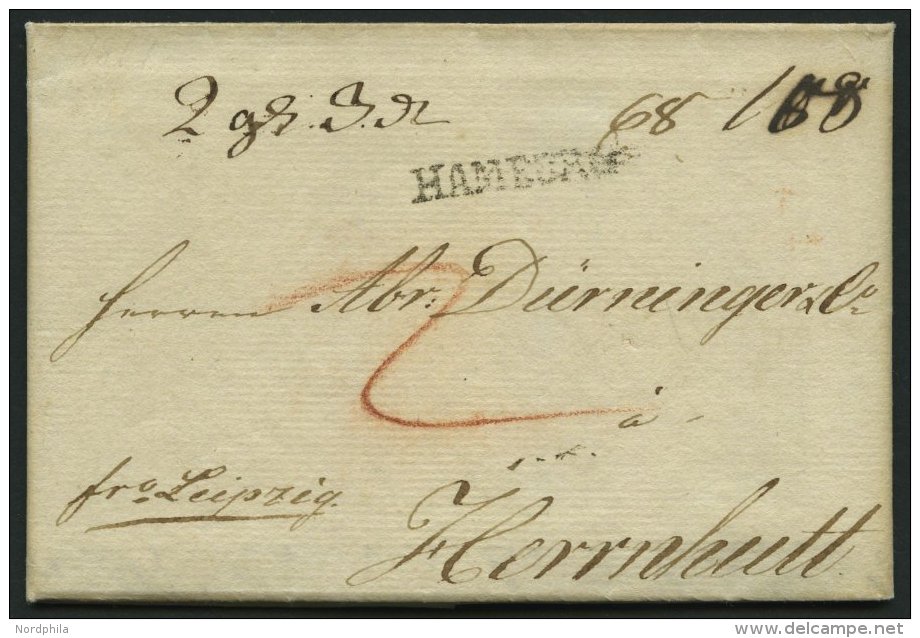 2 gr. 3.
68
HAMBURG
Herren Abr: Dürninger & Co
2
à
fro Leipzig.
Herrnhutt
Nordphila
delcampe.net